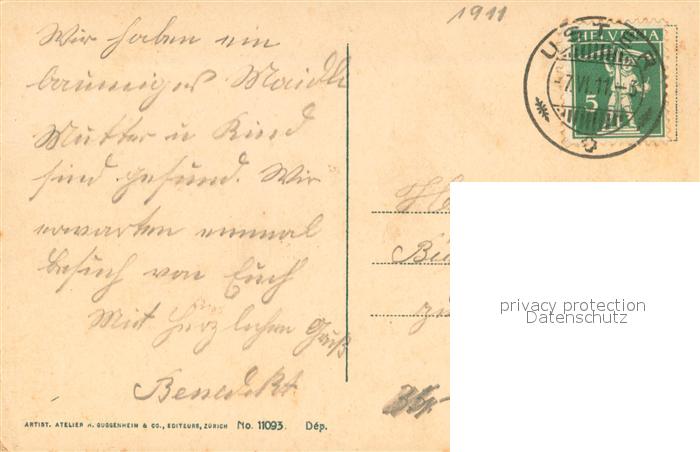 1911
Wir haben ein
baumiges Maidli
Mutter u Kind
sind gesund. Wir
erwarten einmal
besuch von Euch
Mit herzlichen Gruß
Benedikt
USTER
-7.VI.11.-6
HELVETIA
5
zu
privacy protection
Datenschutz
ARTIST. ATELIER H. GUGGENHEIM & CO., EDITEURS, ZÜRICH No. 11093. Dép.